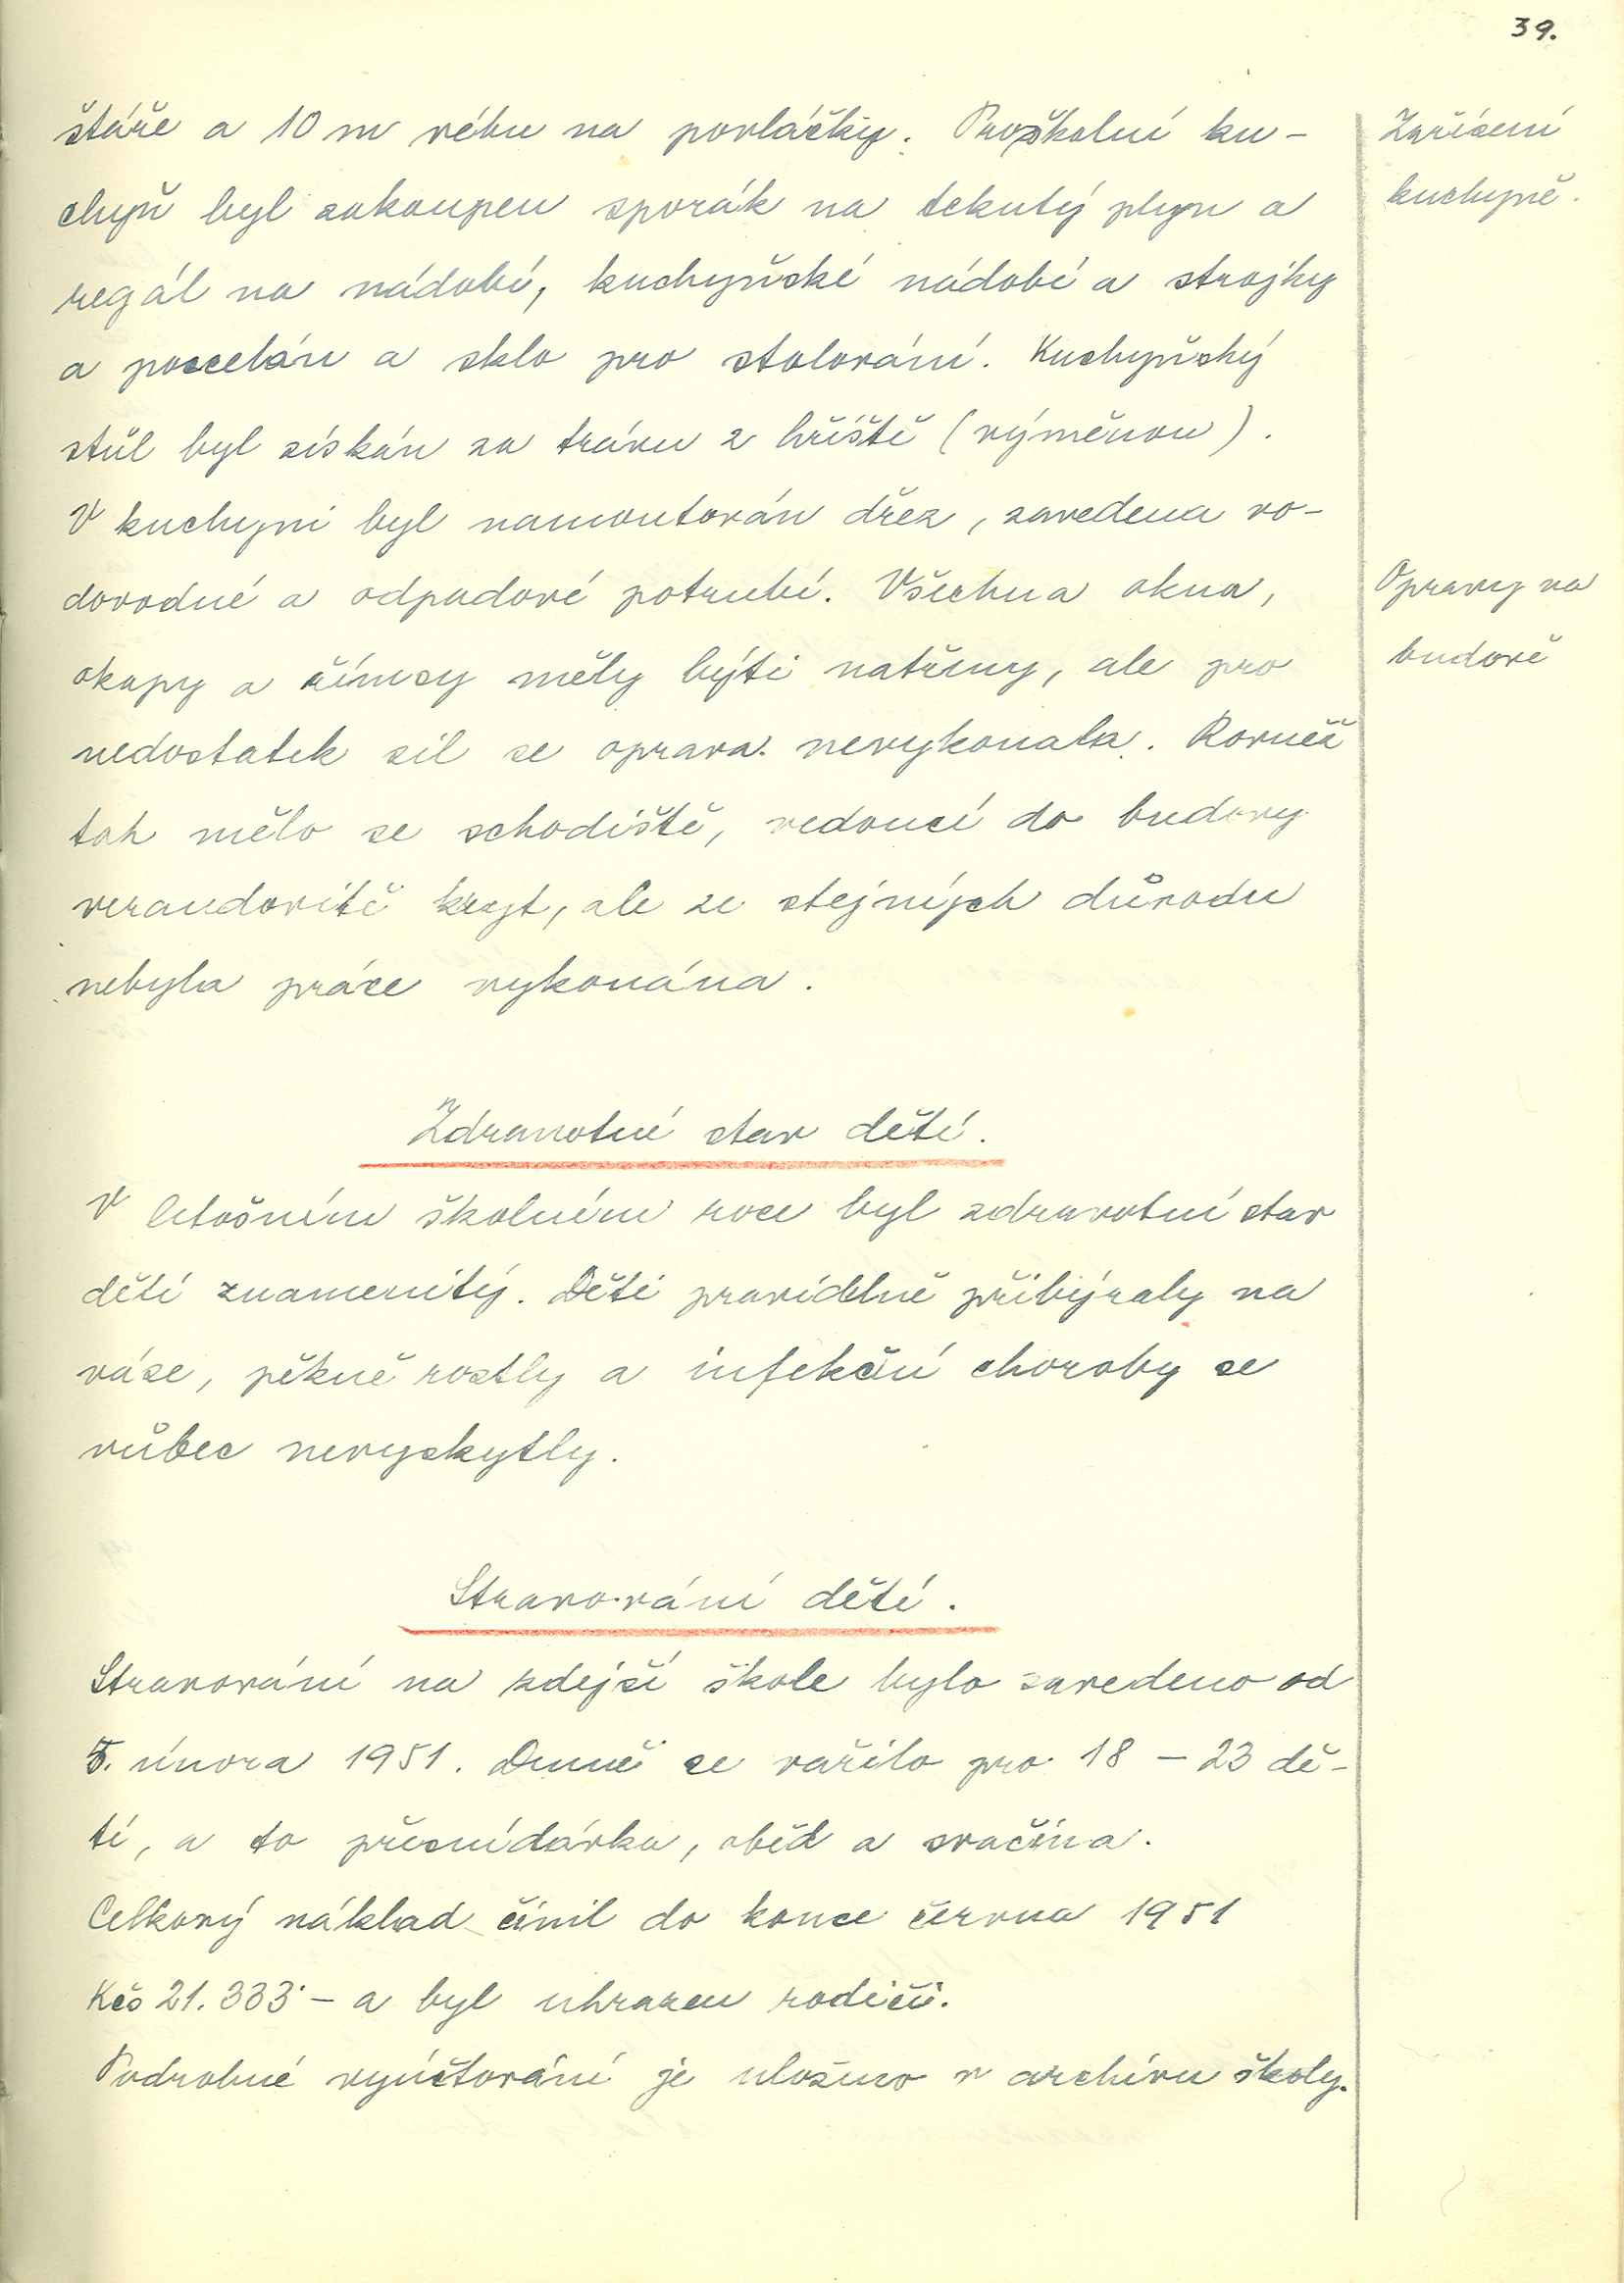 39.
štáře a 10 m rébu na povláčky. Pro školní ku-
Zařízení
chyň byl zakoupen sporák na tekutý plyn a
kuchyně.
regál na nádobí, kuchyňské nádobí a strojky
a porcelán a sklo pro stolování. Kuchyňský
stůl byl získán za trávu z hřiště (výměnou).
V kuchyni byl namontován dřez, zavedena vo-
dovodné a odpadové potrubí. Všechna okna,
Opravy na
okapy a římsy měly býti natřeny, ale pro
budově
nedostatek sil se oprava nevykonala. Rovněž
tak mělo se schodiště, vedoucí do budovy
verandovitě kryt, ale ze stejných důvodu
nebyla práce vykonána.
Zdravotní stav dětí.
V letošním školním roce byl zdravotní stav
dětí znamenitý. Děti pravidelně přibýraly na
váze, pěkně rostly a infekční choroby se
vůbec nevyskytly.
Stravování dětí.
Stravování na zdejší škole bylo zavedeno od
5. února 1951. Denně se vařilo pro 18 – 23 dě-
tí, a to přesnídávka, oběd a svačina.
Celkový náklad činil do konce června 1951
Kčs 21.333·– a byl uhrazen rodiči.
Podrobné vyúčtování je uloženo v archivu školy.